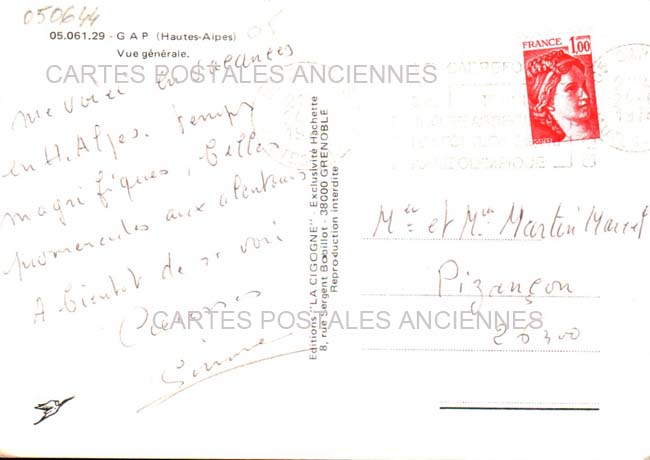 050644
05
05.061.29 - GAP (Hautes-Alpes)
Vue générale.
CARTES POSTALES ANCIENNES
me voici en vacances
en H. Alpes. Temps
magnifiques, belles
promenades aux alentours
A bientôt de se voir
Simone
CARTES POSTALES ANCIENNES
Editions "LA CIGOGNE" - Exclusivité Hachette
8, rue Sergent Bobillot - 38000 GRENOBLE
Reproduction interdite
FRANCE 1,00
Mr et Mme Martin Marcel
Pizançon
26300